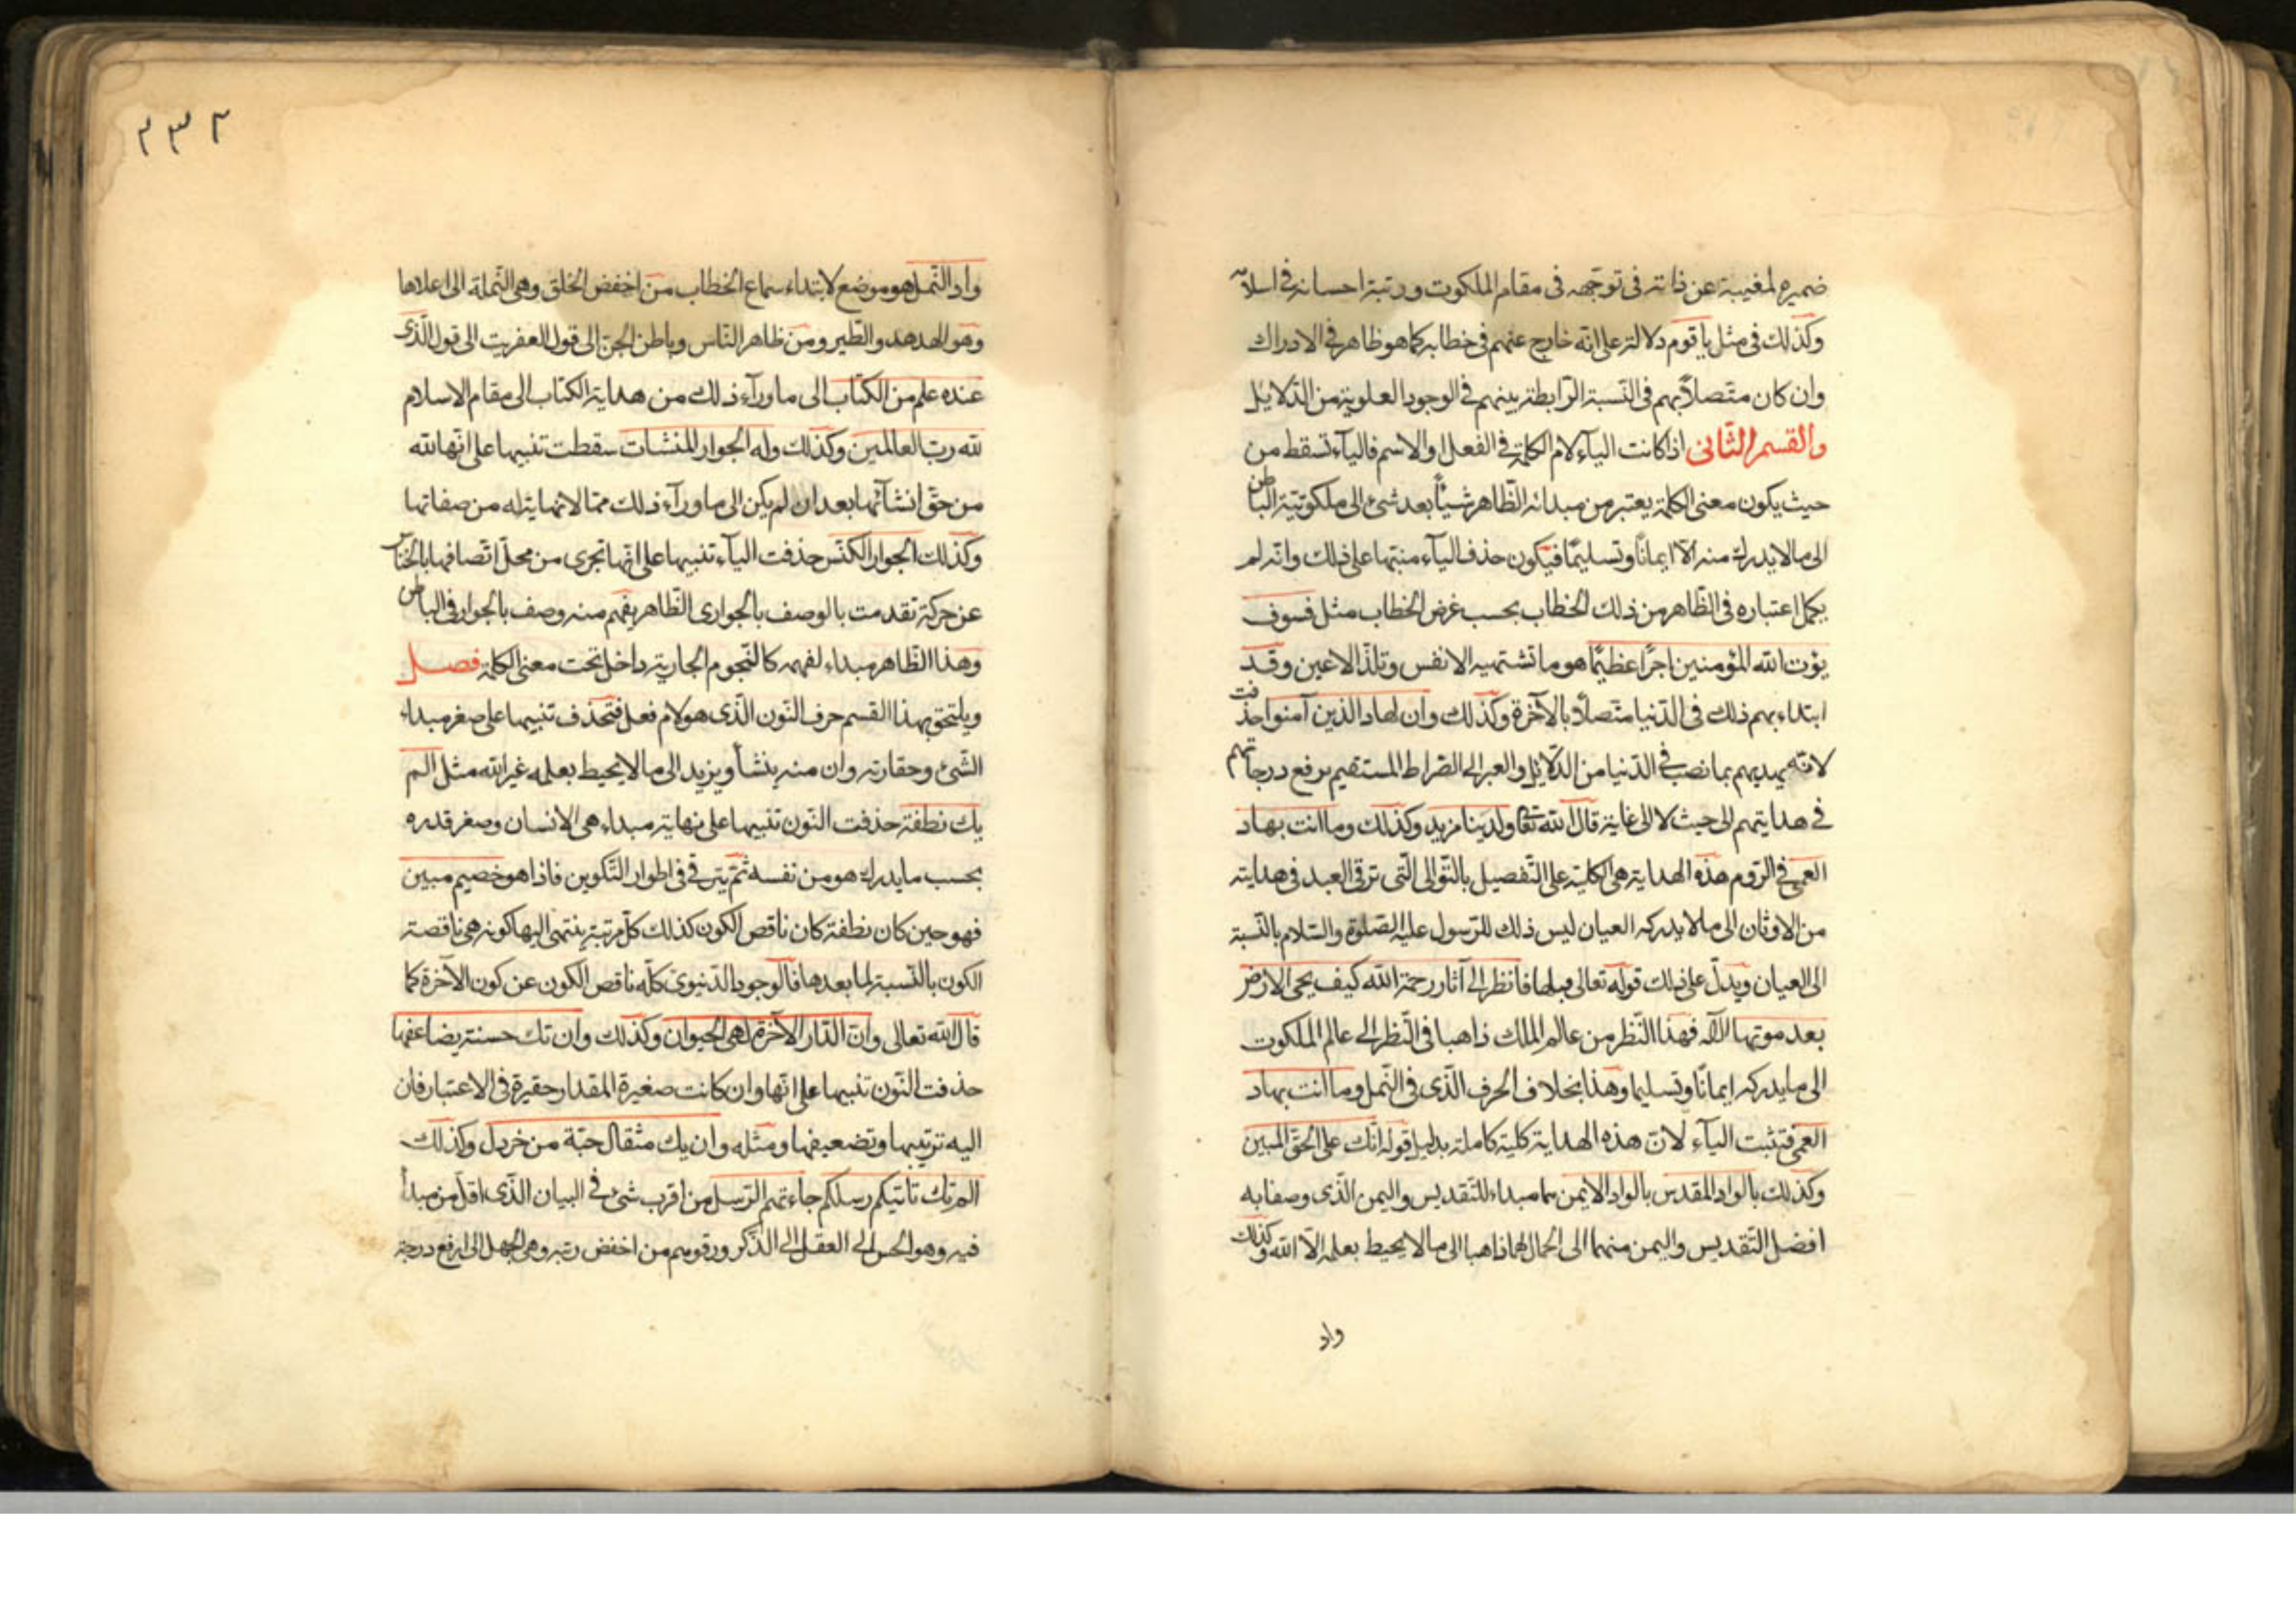 ضميره لمغيبة عن ذاته في توجّهه في مقام الملكوت ورتبة احسانه في اسلامه
وكذلك في مثل يا قوم دلالة على انّه خارج عنهم في خطابه كما هو ظاهر في الادراك
وان كان متّصلاً بهم في النّسبة الرّابطة بينهم في الوجود العلوية من الدّلايل
والقسم الثّانى اذا كانت اليآء لام الكلمة في الفعل او الاسم فاليآء تسقط من
حيث يكون معنى الكلمة يعتبر من مبدائه الظّاهر شيئاً بعد شئ الى ملكوتيّة الباطن
الى ما لا يدرك منه الّا ايماناً وتسليمًا فيكون حذف اليآء منبّها على ذلك وانّه لم
يكمل اعتباره في الظّاهر من ذلك الخطاب بحسب غرض الخطاب مثل فسوف
يؤت الله المؤمنين اجرًا عظيمًا هو ما تشتهيه الانفس وتلذّ الاعين وقد
ابتداء بهم ذلك في الدّنيا متّصلاً بالآخرة وكذلك وان لهاد الذين آمنوا حذفت
لانّه يهديهم بما نصب في الدّنيا من الدّلايل والعبر الى الصّراط المستقيم برفع درجاتهم
في هدايتهم الى حيث لا الى غاية قال الله تعا ولدينا مزيد وكذلك وما انت بهاد
العمى في الرّوم هذه الهداية هي الكلية على التّفصيل بالتّوالى الّتى ترقى العبد في هدايته
من الاوثان الى ما لا يدركه العيان ليس ذلك للرّسول عليه الصّلوة والسّلام بالنّسبة
الى العيان ويدلّ على ذلك قوله تعالى قبلها فانظر الى آثار رحمة الله كيف يحى الارض
بعد موتها الآية فهذا النّظر من عالم الملك ذاهبا في النّظر الى عالم الملكوت
الى ما يدركه ايمانًا وتسليما وهذا بخلاف الحرف الّذى في النّمل وما انت بهاد
العمى فتثبت اليآء لانّ هذه الهداية كلية كاملة بدليل قوله انّك على الحقّ المبين
وكذلك بالواد المقدّس بالواد الايمن هما مبداء للتّقديس واليمن الّذى وصفا به
افضل التّقديس واليمن منهما الى الجمال لهما ذاهبا الى ما لا يحيط بعلمه الّا الله وكذلك
واد
٣٣٣
واد النّمل هو موضع لابتداء سماع الخطاب من اخفض الخلق وهي النّملة الى اعلاها
وهو الهدهد والطّير ومن ظاهر النّاس وباطن الجنّ الى قول العفريت الى قول الّذى
عنده علم من الكتاب الى ما ورآء ذلك من هداية الكتاب الى مقام الاسلام
لله ربّ العالمين وكذلك وله الجوار المنشات سقطت تنبيها على انّها لله
من حقّ انشآئها بعد ان لم يكن الى ما ورآء ذلك ممّا لا نهاية له من صفاتها
وكذلك الجوار الكنّس حذفت اليآء تنبيها على انّها تجرى من محلّ اتّصافها بالخنّاس
عن حركة تقدمت بالوصف بالجوارى الظّاهر يفهم منه وصف بالجوار في الباطن
وهذا الظّاهر مبداء لفهمه كالنّجوم الجارية داخل تحت معنى الكلمة فصل
ويلتحق بهذا القسم حرف النّون الّذى هو لام فعل فتحذف تنبيها على صغر مبداء
الشّئ وحقارته وان منه ينشأ ويزيد الى ما لا يحيط بعلمه غير الله مثل الم
يك نطفة حذفت النّون تنبيها على نهاية مبداء هى الانسان وصغر قدره
بحسب ما يدرك هو من نفسه ثمّ يترقى في اطوار التّكوين فاذا هو خصيم مبين
فهو حين كان نطفة كان ناقص الكون كذلك كلّ مرتبة ينتهى اليها كونه هى ناقصة
الكون بالنّسبة لما بعدها فالوجود الدّنيوى كلّه ناقص الكون عن كون الآخرة كما
قال الله تعالى وانّ الدّار الآخرة لهى الحيوان وكذلك وان تك حسنة يضاعفها
حذفت النّون تنبيها على انّها وان كانت صغيرة المقدار حقيرة في الاعتبار فان
اليه ترتيبها وتضعيفها ومثله وان يك مثقال حبّة من خردل وكذلك
الم تك تاتيكم رسلكم جاءتهم الرّسل من اقرب شئ في البيان الّذى اقلّ من مبدأ
فيه وهو الحسّ الى العقل الى الذّكر ورقوهم من اخفض رتبه وهى الجهل الى ارفع درجة